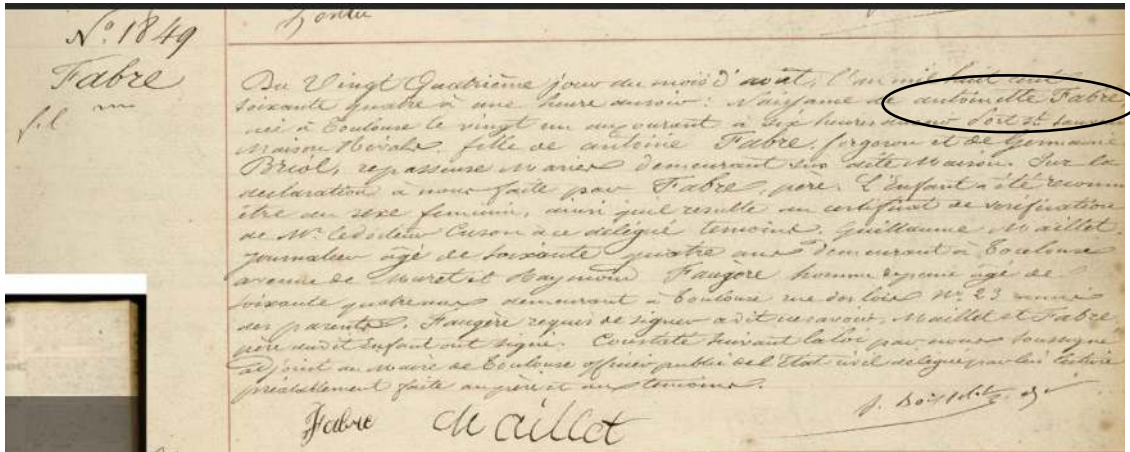 N.º 1849
Fabre
Du Vingt Quatrième jour du mois d'août, l'an mil huit cent
soixante quatre à une heure du soir : Naissance de antoinette Fabre
née à Toulouse le vingt un du courant à six heures du soir
Maison fille de antoine Fabre, forgeron et de Germaine
Briol, repasseuse Mariés demeurant sus dite Maison. Sur la
déclaration à nous faite par Fabre, père. L'Enfant a été reconnu
être du sexe feminin, ainsi qu'il resulte du certificat de verification
de Mr. le docteur à ce délégué temoins. Guillaume Maillet
journalier âgé de soixante quatre ans demeurant à Toulouse
avenue de Muret et Raymond Faugère homme de peine âgé de
soixante quatre ans demeurant à Toulouse rue des lois Nº 23 amis
des parents. Faugère requis de signer a dit ne savoir, Maillet et Fabre
père dudit Enfant ont signé. Constaté suivant la loi par nous soussigné
adjoint au Maire de Toulouse officier public de l'Etat civil délégué par lui lecture
préalablement faite au père et aux temoins.
Fabre Maillet